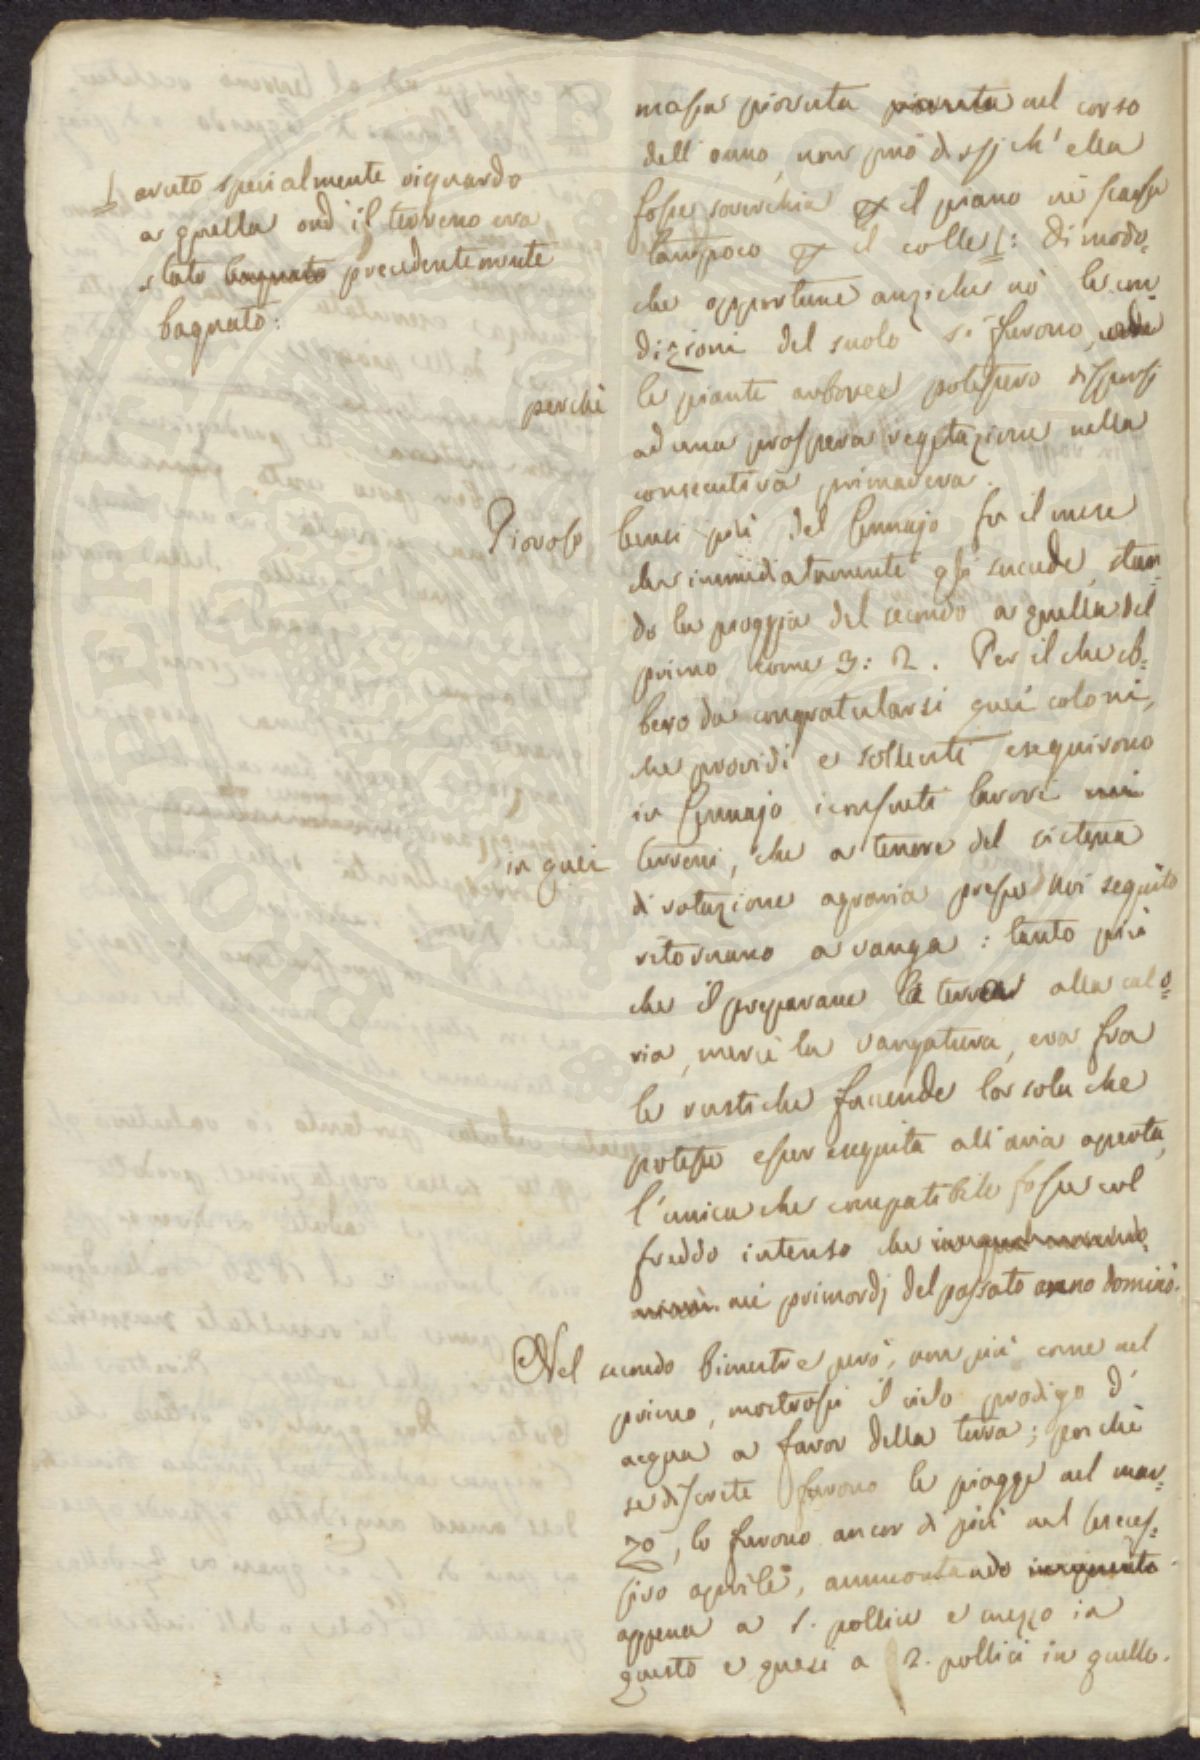 massa piovuta piovuta nel corso
dell'anno, non può dirsi ch'ella
fosse soverchia p il piano nè scarsa
tampoco p il colle: Di modo-
che opportune anziche nò le con-
dizioni del suolo si furono, onde
perchè le piante arboree potessero disporsi
ad una prospera vegetazione nella
consecutiva primavera.
avuto specialmente riguardo
a quella ond'il terreno era
stato bagnato precedentemente
bagnato:
Piovoso bensi più del Gennajo fu il mese
che immediatamente gli succede, stan-
do la pioggia del secondo a quella del
primo come 3: 2. Per il che eb-
bero da congratularsi quei coloni,
che providi e solleciti eseguirono
in Gennajo i consueti lavori nei
in quei terreni, che a tenore del sistema
di rotazione agraria presso di noi seguito
ritornano a vanga: tanto più
che il preparare la terra alla calo-
ria, mercè la vangatura, era fra
le rustiche faccende la sola che
potesse esser eseguita all'aria aperta,
l'unica che compatibile fosse col
freddo intenso che
nei primordj del passato anno dominò.
Nel secondo bimestre però, non più come nel
primo, mostrossi il cielo prodigo d'
acqua a favor della terra; perchè
se discrete furono le piogge nel mar-
zo, lo furono ancor di più nel succes-
sivo aprile, ammontando
appena a 1. pollice e mezzo in
questo e quasi a 2. pollici in quello.